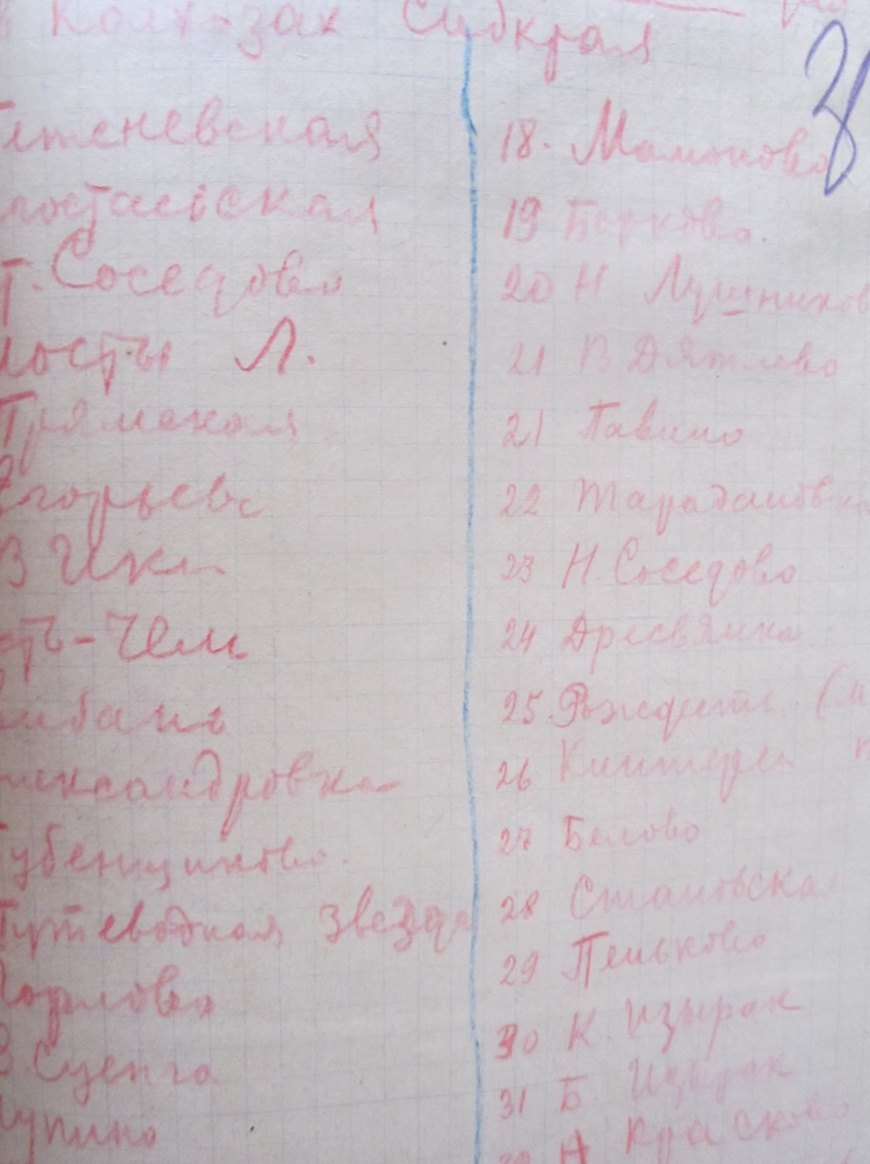 Колх-зак Сибкрая
стеневская
мостаевская
т. Соседово
Мосты Л.
Прямская
Егорьевс
В Ики
сть-Чем
Александровка
Губенщиково.
Путеводная звезда
Горлово
В. Сузенга
18. Мамоново
19 Борково.
20 Н Лушников
21 В Дятлово
21 Павино
22 Тарадановка
23 Н. Соседово
24 Дресвянка
25. Рождеств (м
26 Кинтереп
27 Белово
28 Становская
29 Пеньково
30 К. Изырак
31 Б Изырак
Красково